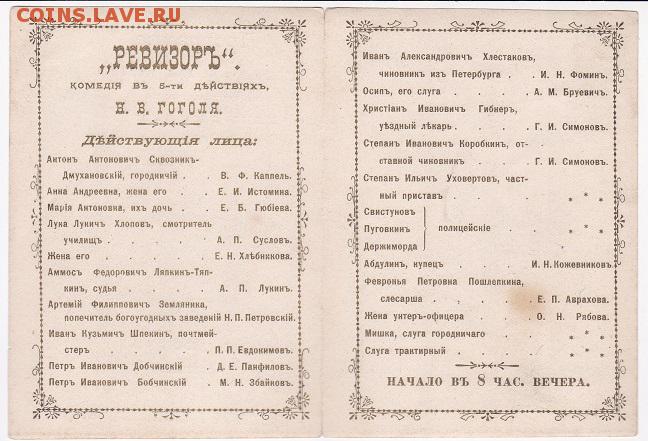 COINS.LAVE.RU
„РЕВИЗОРЪ“.
КОМЕДІЯ ВЪ 5-ти ДѢЙСТВІЯХЪ,
Н. В. ГОГОЛЯ.
Дѣйствующія лица:
Антонъ Антоновичъ Сквозникъ-
Дмухановскій, городничій . . В. Ф. Каппель.
Анна Андреевна, жена его . . Е. И. Истомина.
Марія Антоновна, ихъ дочь . . Е. Б. Гюбіева.
Лука Лукичъ Хлоповъ, смотритель
училищъ . . . . . А. П. Сусловъ.
Жена его . . . . . Е. Н. Хлѣбникова.
Аммосъ Федоровичъ Ляпкинъ-Тяп-
кинъ, судья . . . . А. П. Лукинъ.
Артемій Филипповичъ Земляника,
попечитель богоугодныхъ заведеній Н. П. Петровскій.
Иванъ Кузьмичъ Шпекинъ, почтмей-
стеръ . . . . . П. П. Евдокимовъ.
Петръ Ивановичъ Добчинскій . Д. Е. Панфиловъ.
Петръ Ивановичъ Бобчинскій . М. Н. Збайковъ.
Иванъ Александровичъ Хлестаковъ,
чиновникъ изъ Петербурга . . И. Н. Фоминъ.
Осипъ, его слуга . . . А. М. Бруевичъ.
Христіанъ Ивановичъ Гибнеръ,
уѣздный лѣкарь . . . Г. И. Симоновъ.
Степанъ Ивановичъ Коробкинъ, от-
ставной чиновникъ . . . Г. И. Симоновъ.
Степанъ Ильичъ Уховертовъ, част-
ный приставъ . . . . * * *
Свистуновъ
Пуговкинъ } полицейскіе . . . * * *
Держиморда
Абдулинъ, купецъ . . . И. Н. Кожевниковъ.
Февронья Петровна Пошлепкина,
слесарша . . . . Е. П. Аврахова.
Жена унтеръ-офицера . . . О. Н. Рябова.
Мишка, слуга городничаго . . * * *
Слуга трактирный . . . . * * *
НАЧАЛО ВЪ 8 ЧАС. ВЕЧЕРА.